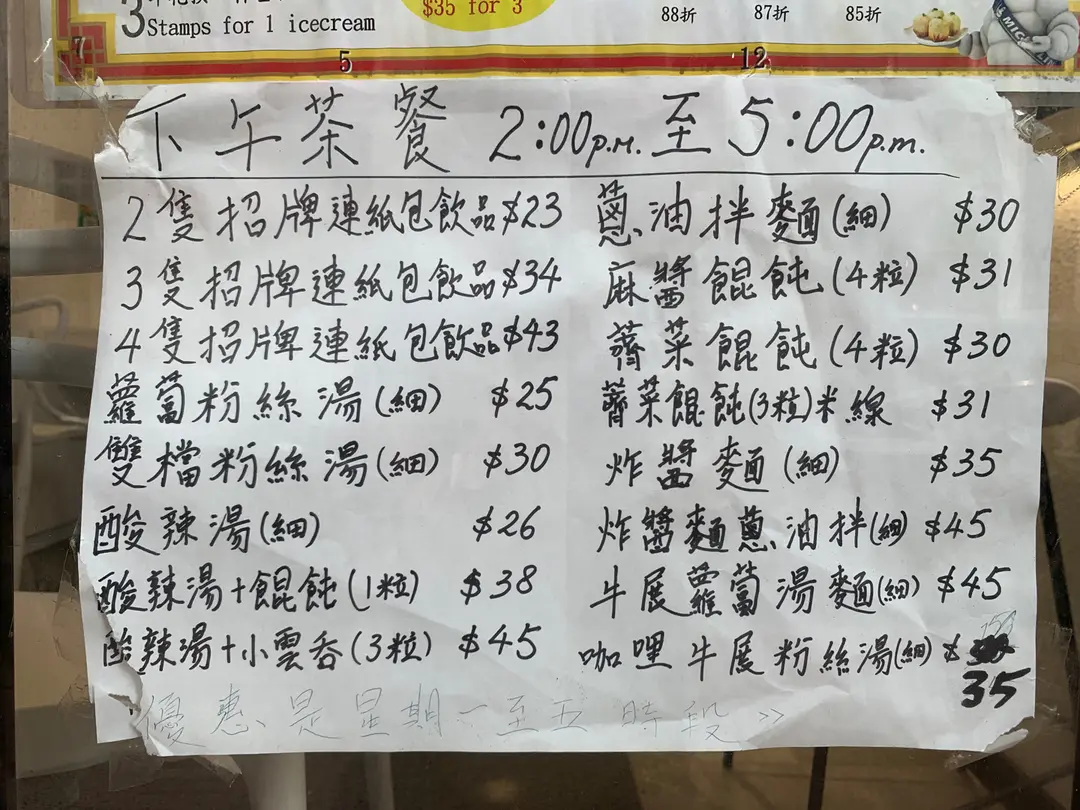 3
Stamps for 1 icecream
$35 for 3
88折
87折
85折
MICHELIN
7
5
12
下午茶餐 2:00p.m. 至 5:00p.m.
2隻招牌連紙包飲品$23
3隻招牌連紙包飲品$34
4隻招牌連紙包飲品$43
蘿蔔粉絲湯(細) $25
雙檔粉絲湯(細) $30
酸辣湯(細) $26
酸辣湯+餛飩(1粒) $38
酸辣湯+小雲吞(3粒) $45
蔥油拌麵(細) $30
麻醬餛飩(4粒) $31
薺菜餛飩(4粒) $30
薺菜餛飩(3粒)米線 $31
炸醬麵(細) $35
炸醬麵蔥油拌(細) $45
牛展蘿蔔湯麵(細) $45
咖哩牛展粉絲湯(細) $
35
優惠是星期一至五時段>>